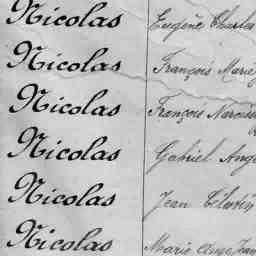 Nicolas Eugène Charles
Nicolas François Marie
Nicolas François Narcisse
Nicolas Gabriel Ange
Nicolas Jean Célestin
Nicolas Marie Ange Jean